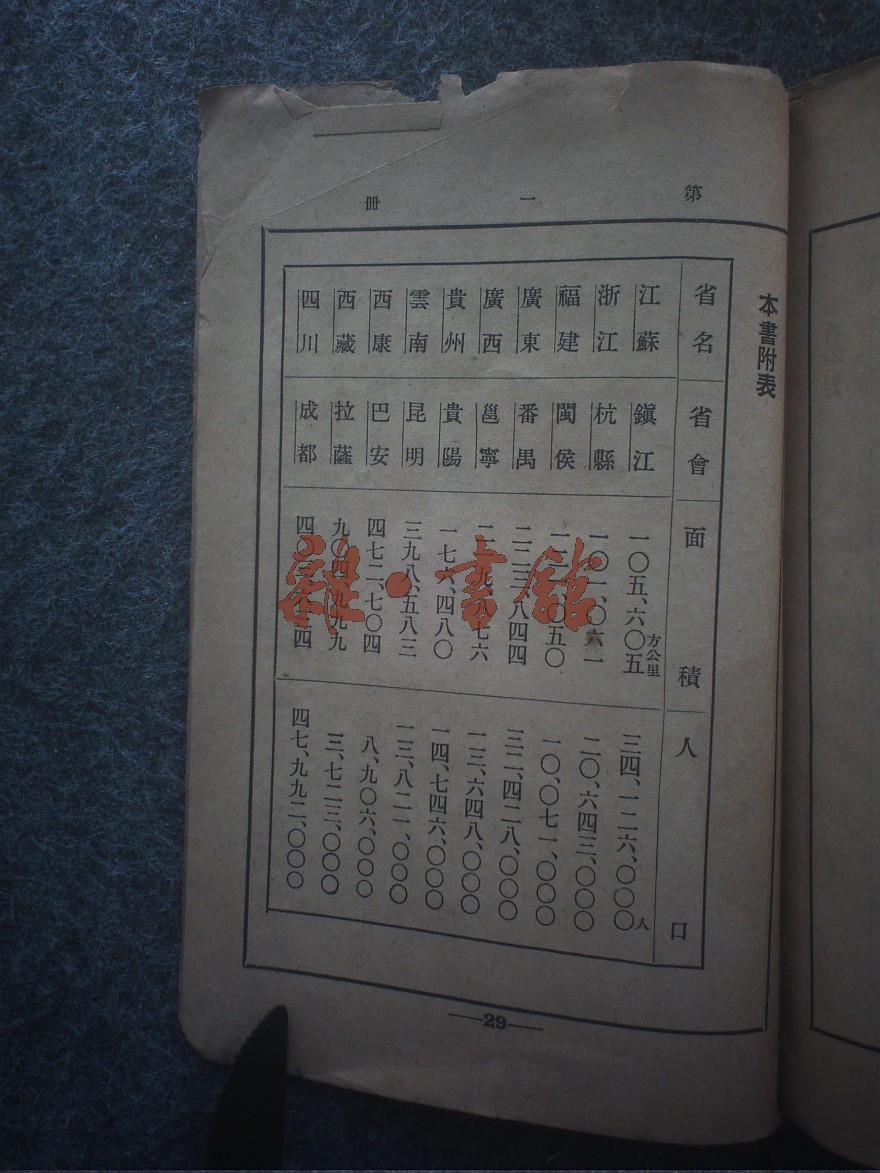 第一冊
本書附表
省名 省會 面積 人口
江蘇 鎭江 一〇五、六〇五方公里 三四、一二六、〇〇〇人
浙江 杭縣 一〇一、〇六一 二〇、六四三、〇〇〇
福建 閩侯 一〇、〇七一、〇〇〇
廣東 番禺 三二、四二八、〇〇〇
廣西 邕寧 一三、六四八、〇〇〇
貴州 貴陽 一七六、四八〇 一四、七四六、〇〇〇
雲南 昆明 三九八、五八三 一三、八二一、〇〇〇
西康 巴安 四七二、七〇四 八、九〇六、〇〇〇
西藏 拉薩 九〇四、九九九 三、七二三、〇〇〇
四川 成都 四七、九九二、〇〇〇
雜·書館
29